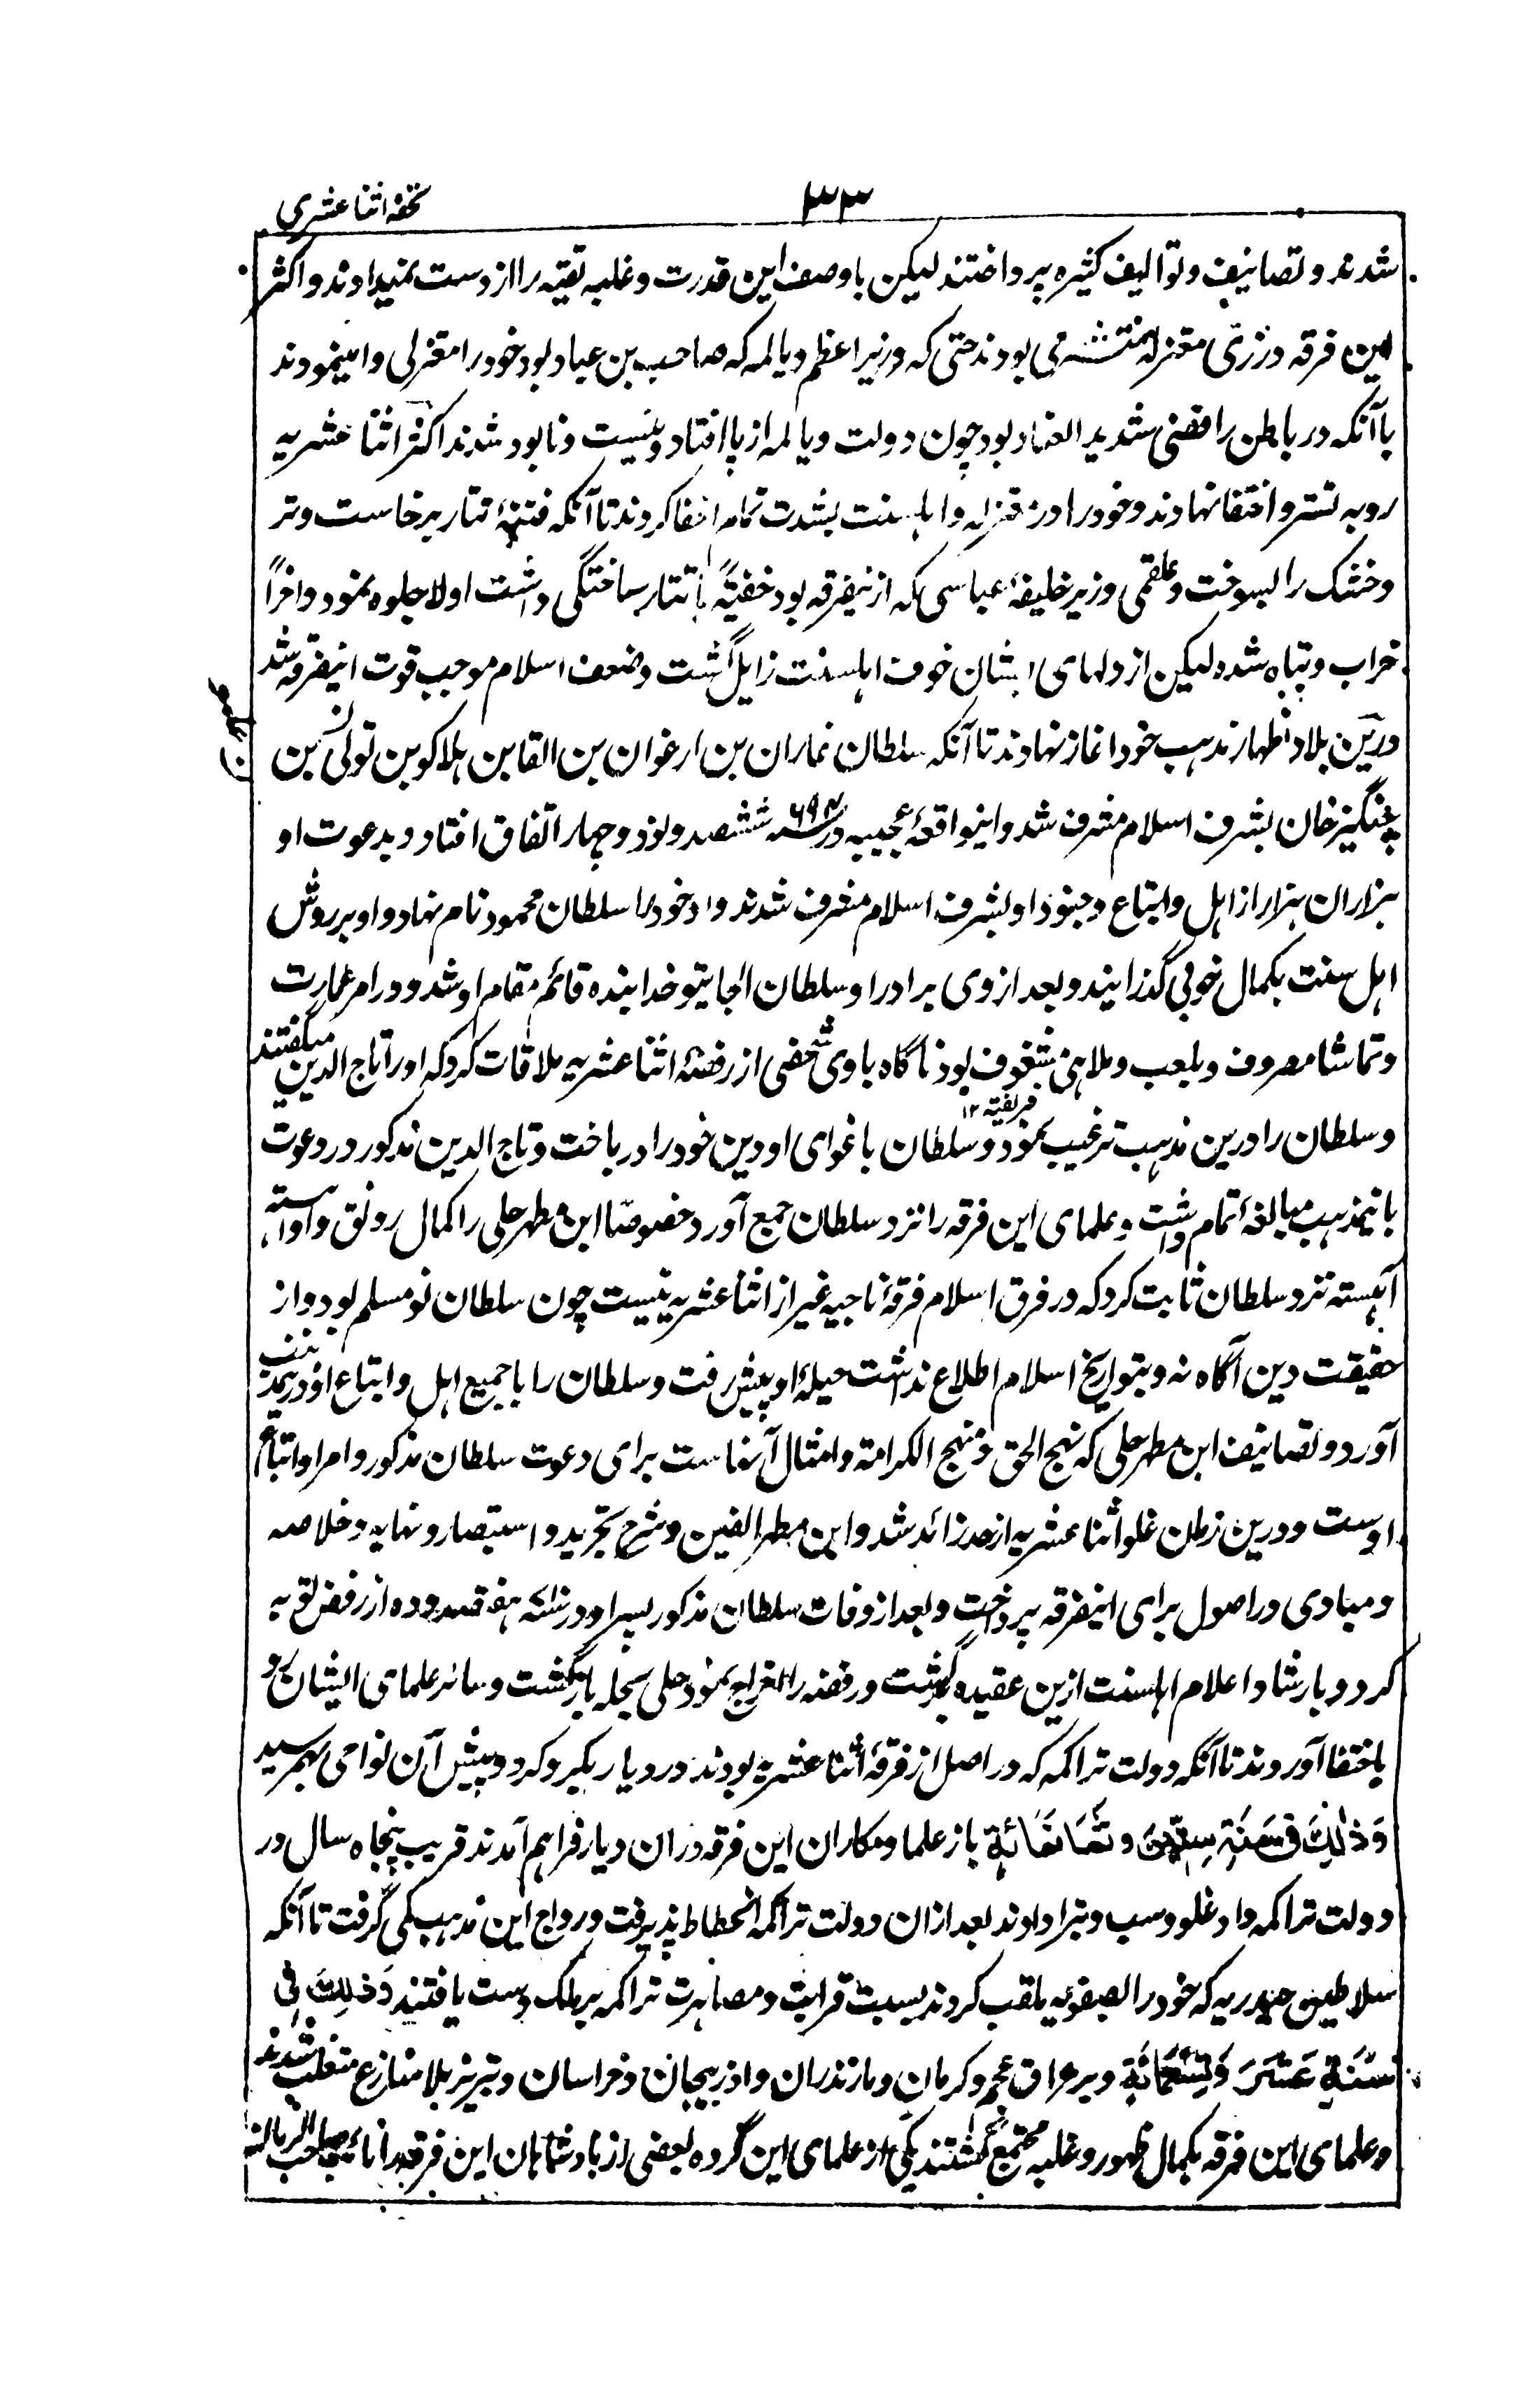 تحفه اثنا عشری
۳۳
شدند و تصانیف و توالیف کثیره پرداختند لیکن با وصف این قدرت و غلبه تقیه را از دست نمیدادند و اکثر
این فرقه در زی معتزله متستر می بودند حتی که وزیر اعظم دیالمه که صاحب بن عباد بود خود را معتزلی وامینمودند
با آنکه در باطن رافضی شدید العناد بود چون دولت دیالمه از پا افتاد و نیست و نابود شدند اکثر اثنا عشریه
رو به تستر و اختفا نهادند و خود را در معتزله و اهلسنت بشدت تمام اخفا کردند تا آنکه فتنهٔ تتار برخاست و تر
و خشک را بسوخت و علقمی وزیر خلیفهٔ عباسی که ازینفرقه بود خفیةً با تتار ساختگی داشت اولا جلوه نمود و اخراً
خراب و تباه شده لیکن از دلهای ایشان خوف اهلسنت زایل گشت و ضعف اسلام موجب قوت اینفرقه شد
درین بلاد اظهار مذهب خود اغاز نهادند تا آنکه سلطان غازان بن ارغوان بن القا بن هلاکو بن تولی بن
چنگیز خان بشرف اسلام مشرف شد و اینواقعهٔ عجیبه در سنه ۶۹۴ ششصد و نود و چهار اتفاق افتاد و بدعوت او
هزاران هزار از اهل و اتباع و جنود او بشرف اسلام مشرف شدند و او خود را سلطان محمود نام نهاد و او بر روش
اهل سنت بکمال خوبی گذرانید و بعد از وی برادر او سلطان الجایتو خدا بنده قائم مقام او شد و در امر عمارت
و تماشا مصروف و بلعب و ملاهی مشغوف بود ناگاه باوی شخصی از رفضهٔ اثنا عشریه ملاقات کرد که او را تاج الدین میگفتند
و سلطان را درین مذهب ترغیب نمود و سلطان باغوای او دین خود را در باخت و تاج الدین مذکور در دعوت
فریفته ۱۲
باینمذهب مبالغهٔ تمام داشت و علمای این فرقه را نزد سلطان جمع آورد خصوصًا ابن مطهر حلی را کمال رونق داد و آهسته
آهسته نزد سلطان ثابت کرد که در فرق اسلام فرقهٔ ناجیه غیر از اثنا عشریه نیست چون سلطان نو مسلم بود و از
حقیقت دین آگاه نه و بتواریخ اسلام اطلاع نداشت حیلهٔ او پیش رفت و سلطان را با جمیع اهل و اتباع او درینمذهب
آورد و تصانیف ابن مطهر حلی که نهج الحق و منهج الکرامة و امثال آنهاست برای دعوت سلطان مذکور و امرا و اتباع
اوست و درین زمان غلو اثنا عشریه از حد زائد شد و ابن مطهر الفین و شرح تجرید و استبصار و نهایه و خلاصه
و مبادی در اصول برای اینفرقه پرداخت و بعد از وفات سلطان مذکور پسر او در سنه هفتصد و ده از رفض توبه
کرد و بارشاد اعلام اهلسنت ازین عقیده برگشت و رفضه را اخراج نمود حلی بحله بازگشت و سائر علمای ایشان رو
باختفا آوردند تا آنکه دولت تراکمه که در اصل از فرقهٔ اثنا عشریه بودند در دیار بکر و کرد و پیش آن نواحی بهمرسید
وَذٰلِكَ فی سَنَةِ سِتِّینَ و ثَمَانَمَائَةِ باز علما و مکاران این فرقه در ان دیار فراهم آمدند قریب پنجاه سال در
دولت تراکمه داد غلو و سب و تبرا دادند بعد ازان دولت تراکمه انحطاط پذیرفت و رواج این مذهب کمی گرفت تا آنکه
سلاطین حیدریه که خود را بصفویه ملقب کردند بسبب قرابت و مصاهرت تراکمه بر ملک دست یافتند وَذٰلِكَ فِی
سَنَةِ عَشَرَ وَتِسْعَمِائَةِ و بر عراق عجم و کرمان و مازندران و اذربیجان و خراسان و تبریز بلا منازع متغلب شدند
و علمای این فرقه بکمال ظهور و غلبه مجتمع گشتند یکی از علمای این گروه بعضی از بادشاهان این فرقه را نائب صاحب الزمان